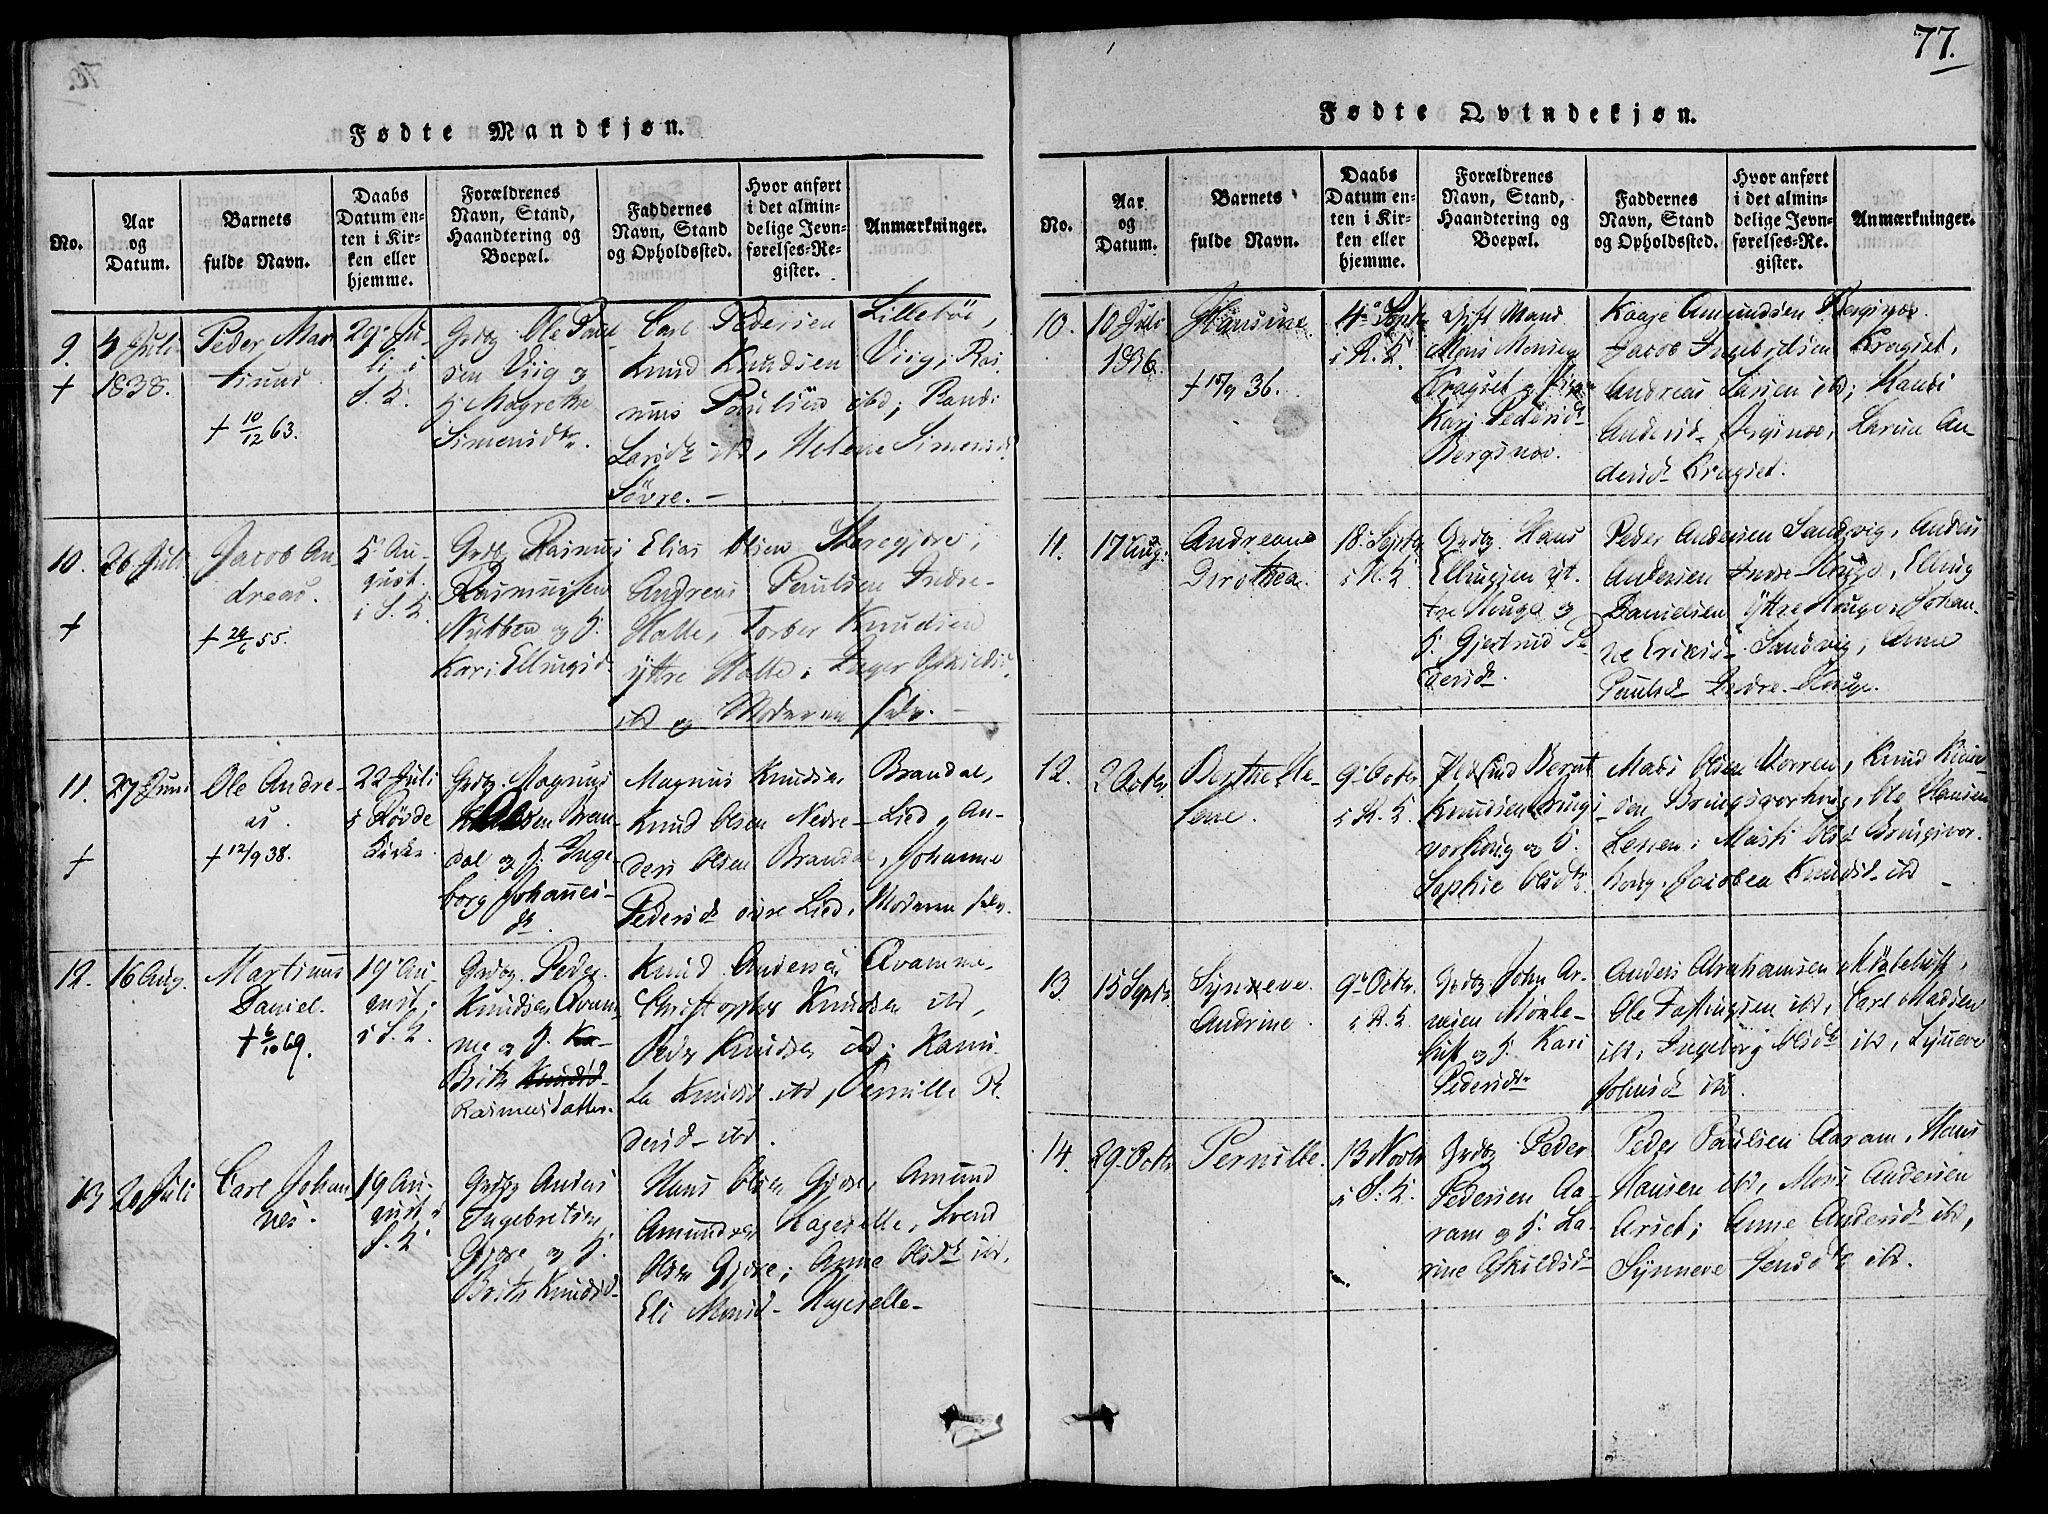 77.
Fødte Mandkjøn.
No.
Aar
og
Datum.
Barnets
fulde Navn.
Daabs
Datum en-
ten i Kir-
ken eller
hjemme.
Forældrenes
Navn, Stand,
Haandtering og
Boepæl.
Faddernes
Navn, Stand
og Opholdssted.
Hvor anført
i det almin-
delige Jevn-
førelses-Re-
gister.
Anmærkninger.
9.
+
4 Juli
1838.
Peder Mar
tinus
+ 10/12 63.
29 Ju-
li i
S. K.
Grdbr Ole Paul
sen Viig og
H. Magrethe
Simensdtr.
Carl Pedersen Lillebøe,
Knud Knudsen Viig, Ras-
mus Paulsen ibd; Randi
Larsdtr ibd, Helene Simensd
Søvre. –
10.
+
26 Juli
Jacob An
dreas.
+ 26/6 55.
5 Au-
gust.
i S. K.
Grdbr Rasmus
Rasmussen
Nubben og H.
Kari Ellingsd.
Elias Olsen Skaregjøre,
Andreas Paulsen Indre-
Halle, Torber Knudsen
yttre Halle; Inger
ibd og Moderen selv. –
11.
+
27 Juni
Ole Andre-
as.
+ 12/9 38.
22 Juli
i Røvde
Kirke
Grdbr. Magnus
Bran-
dal og H. Inge-
borg Johannes-
dtr.
Magnus Knudsen Brandal,
Knud Olsen Nedre-Lied, An-
ders Olsen Brandal, Johanne
Pedersdtr øvre Lied, Moderen selv.
12.
16 Aug.
Martinus
Daniel.
+ 6/10 69.
19 Au-
gust
i S. K.
Grdbr. Peder
Knudsen Qvam-
me og H.
Brithe Knudsd
Rasmusdatter.
Knud Andersen Qvamme,
Christopher Knudsen ibd,
Peder Knudsen ibd; Kanu-
la Knudsd ibd, Pernille P.
dersd ibd.
13
20 Juli
Carl Johan
nes.
19 Au-
gust i
S. K.
Grdbr Anders
Ingebretsen
Gjøre og H.
Brithe Knudsd
Hans Olsen Gjøre, Amund
Amundsen Hageselle, Svend
Olsen Gjøre; Anne Olsdtr ibd,
Eli Monsd Hageselle
Fødte Qvindekjøn.
No.
Aar
og
Datum.
Barnets
fulde Navn.
Daabs
Datum en-
ten i Kir-
ken eller
hjemme.
Forældrenes
Navn, Stand,
Haandtering og
Boepæl.
Faddernes
Navn, Stand
og Opholdssted.
Hvor anført
i det almin-
delige Jevn-
førelses-Re-
gister.
Anmærkninger.
10.
10 Juli
1836.
Hansine
+ 15/9 36.
4 Septr
i R. K.
Gift Mand
Mons Monsen
Kragset og Pige
Kari Pedersd
Bergsnov.
Kaare Amundsen Bergsnov
Jacob Ingebrdsen Kragset,
Andreas Larsen ibd; Randi
Andersd Bergsnov, Larine An-
dersd Kragset.
11.
17 Aug.
Andreane
Dorothea.
18. Septbr
i R. K
Grdbr. Hans
Ellingsen yt-
tre Houge og
H. Gjertrud Pe-
dersdtr.
Peder Andersen Sandvig, Anders
Andersen Indre-Houge, Elling
Danielsen yttre Houge; Johan-
ne Eriksd Sandvig, Anne
Paulsd Indre-Houge.
12.
2 Octbr.
Berthe He-
lene.
9 Octbr
i R. K.
Bernt
Knudsen Brings
vorhoug og H.
Sophie Olsdtr.
Mads Olsen Vorren, Knud Knud-
sen Bringsvorhoug, Ole Hansen
Olsd Bringsvor-
houg, Jacobea Knudsd ibd –
13.
15 Septbr
Synneve
Andrine.
9 Octbr.
i R. K.
Grdbr John Ar-
nesen Mörkle-
bust og H. Kari
Pedersdtr
Anders Abrahamsen Mörklebust,
Ole Fastingsen ibd, Carl Madsen
ibd; Ingeborg Olsdtr ibd, Synneve
Johnsd ibd.
14.
29 Octbr
Pernille.
13 Novbr
i S. K.
Grdbr Peder
Pedersen Aa-
ram og H. La-
rine Askildsd
Peder Paulsen Aaram, Hans
Hansen ibd, Mons Andersen
Arset; Anne Andersd ibd,
Synneve Jensdtr ibd.